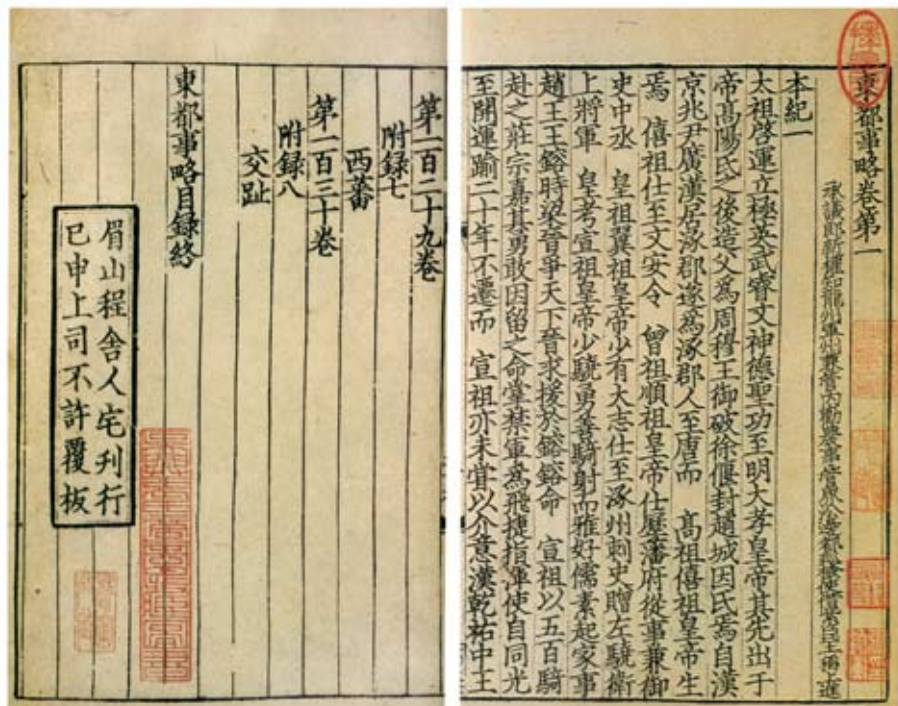 東都事略卷第一
承議郎新權知龍州軍州兼管內勸農事管界沿邊都巡檢使借紫臣王稱上進
本紀一
太祖啓運立極英武睿文神德聖功至明大孝皇帝其先出于
帝髙陽氏之後造父爲周穆王御破徐偃封趙城因氏焉自漢
京兆尹廣漢居涿郡遂爲涿郡人至唐而 髙祖僖祖皇帝生
焉 僖祖仕至文安令 曾祖順祖皇帝仕歷藩府從事兼御
史中丞 皇祖翼祖皇帝少有大志仕至涿州刺史贈左驍衛
上將軍 皇考宣祖皇帝少驍勇善騎射而雅好儒素起家事
趙王王鎔時梁晉爭天下晉求援於鎔鎔命 宣祖以五百騎
赴之莊宗嘉其勇敢因留之命掌禁軍爲飛捷指揮使自同光
至開運踰二十年不遷而 宣祖亦未甞以介意漢乾祐中王
第一百二十九卷
附録七
西蕃
第一百三十卷
附録八
交趾
東都事略目録終
眉山程舍人宅刊行
已申上司不許覆板